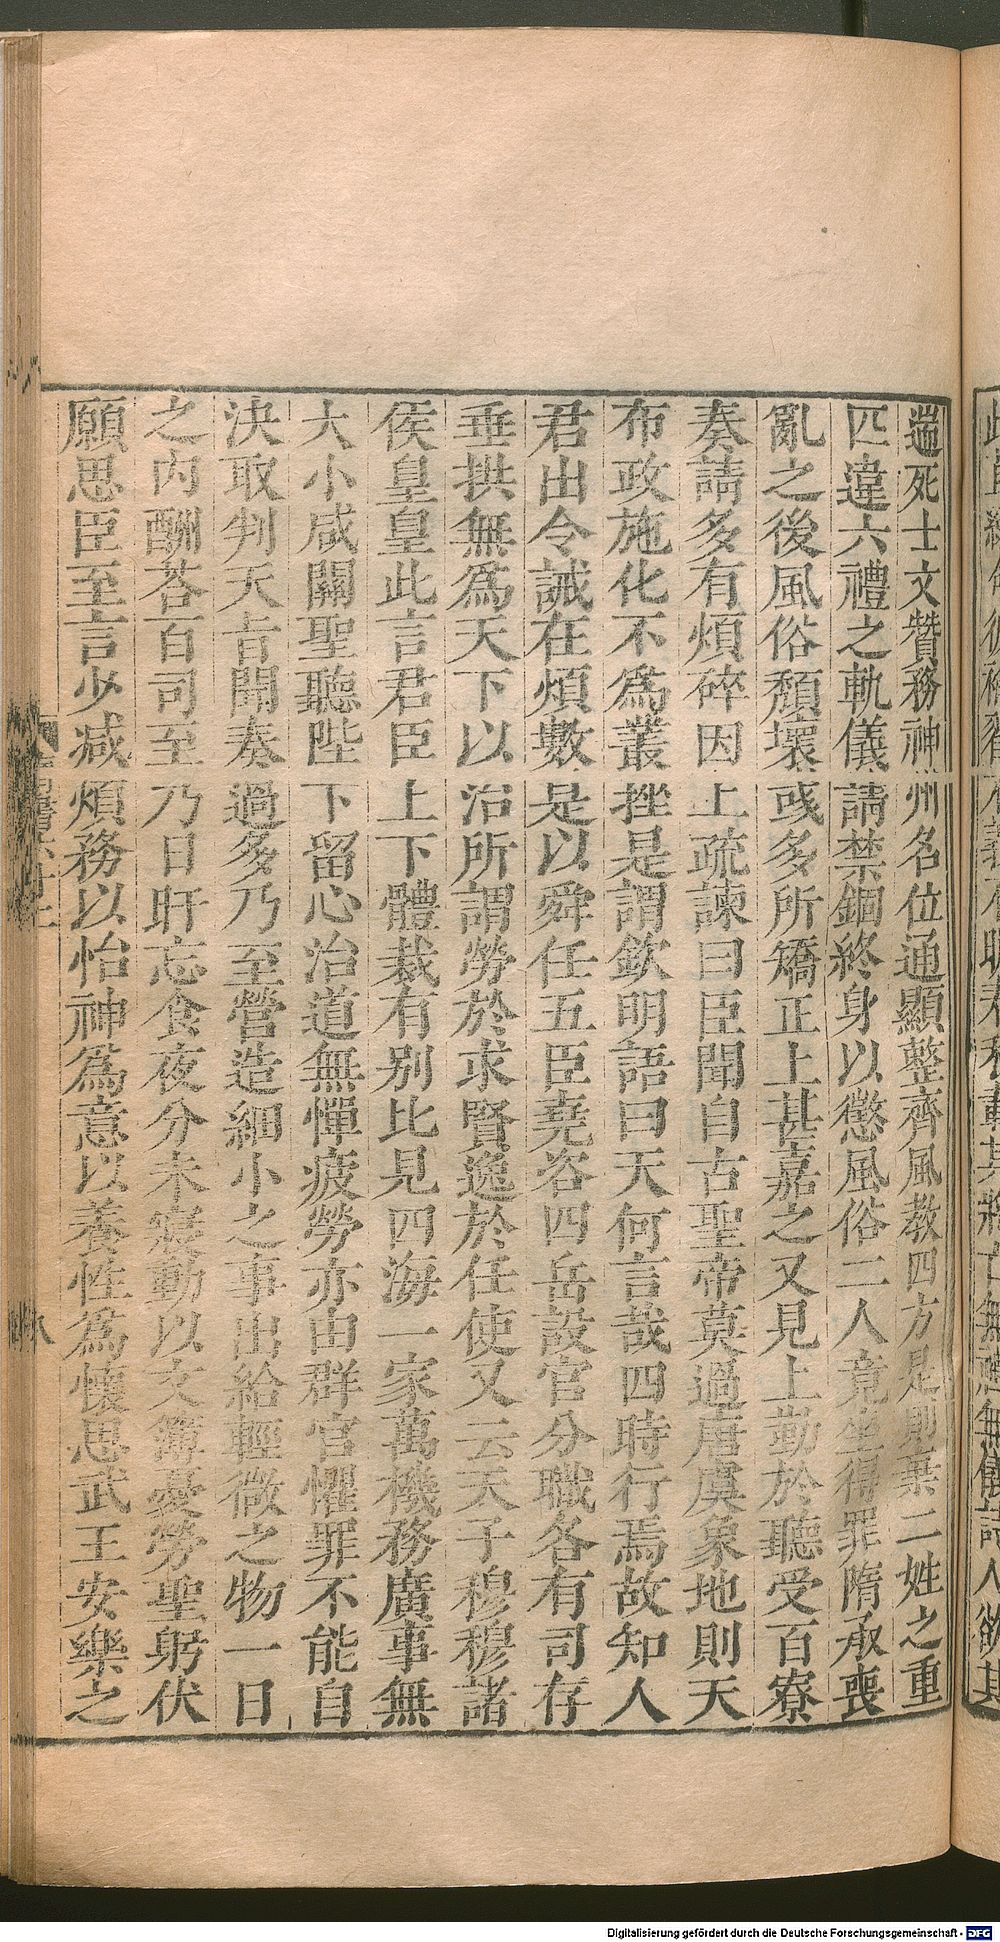 遄死士文贊務神州名位通顯整齊風教四方是則棄二姓之重
匹違六禮之軌儀請禁錮終身以懲風俗二人竟坐得罪隋承喪
亂之後風俗頹壞或多所矯正上甚嘉之又見上勤於聽受百寮
奏請多有煩碎因上疏諫曰臣聞自古聖帝莫過唐虞象地則天
布政施化不爲叢挫是謂欽明語曰天何言哉四時行焉故知人
君出令誡在煩數是以舜任五臣堯咨四岳設官分職各有司存
垂拱無爲天下以治所謂勞於求賢逸於任使又云天子穆穆諸
侯皇皇此言君臣上下體裁有别比見四海一家萬機務廣事無
大小咸關聖聽陛下留心治道無憚疲勞亦由群官懼罪不能自
決取判天旨聞奏過多乃至營造細小之事出給輕微之物一日
之内酬荅百司至乃日旰忘食夜分未寢動以文簿憂勞聖躬伏
願思臣至言少减煩務以怡神爲意以養性爲懷思武王安樂之
Digitalisierung gefördert durch die Deutsche Forschungsgemeinschaft - DFG